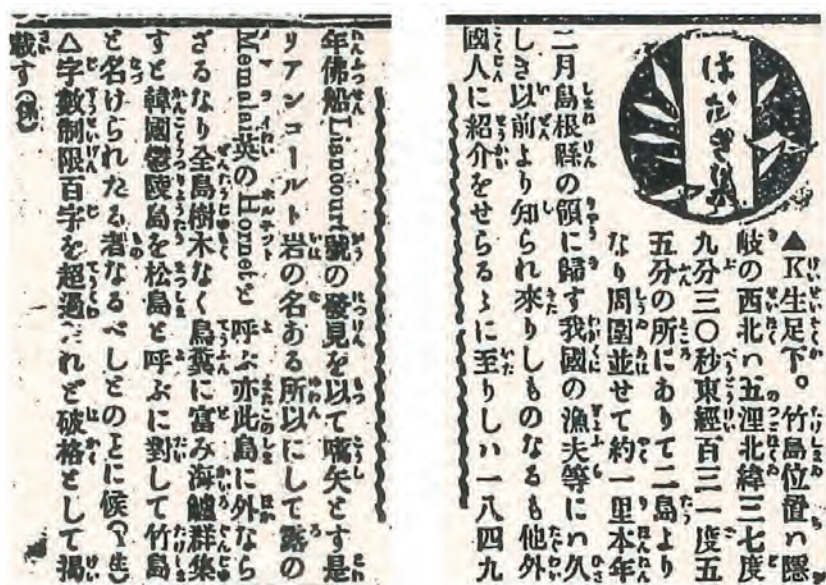 はがき集
▲K生足下。竹島位置ハ隱
岐の西北八五浬北緯三七度
九分三〇秒東經百三一度五
五分の所にありて二島より
なり周圍並せて約一里本年
二月島根縣の領に歸す我國の漁夫等にハ久
しき以前より知られ來りしものなるも他外
國人に紹介をせらるゝに至りしハ一八四九
年佛船Liancourt號の發見を以て嚆矢とす是
リアンコールト岩の名ある所以にして露の
Menalai英のHornetと呼ぶ亦此島に外なら
ざるなり全島樹木なく鳥糞に富み海驢群集
すと韓國鬱陵島を松島と呼ぶに對して竹島
と名けられたる者なるべしとのことに候(生)
△字數制限百字を超過これど破格として揭
載す(係)